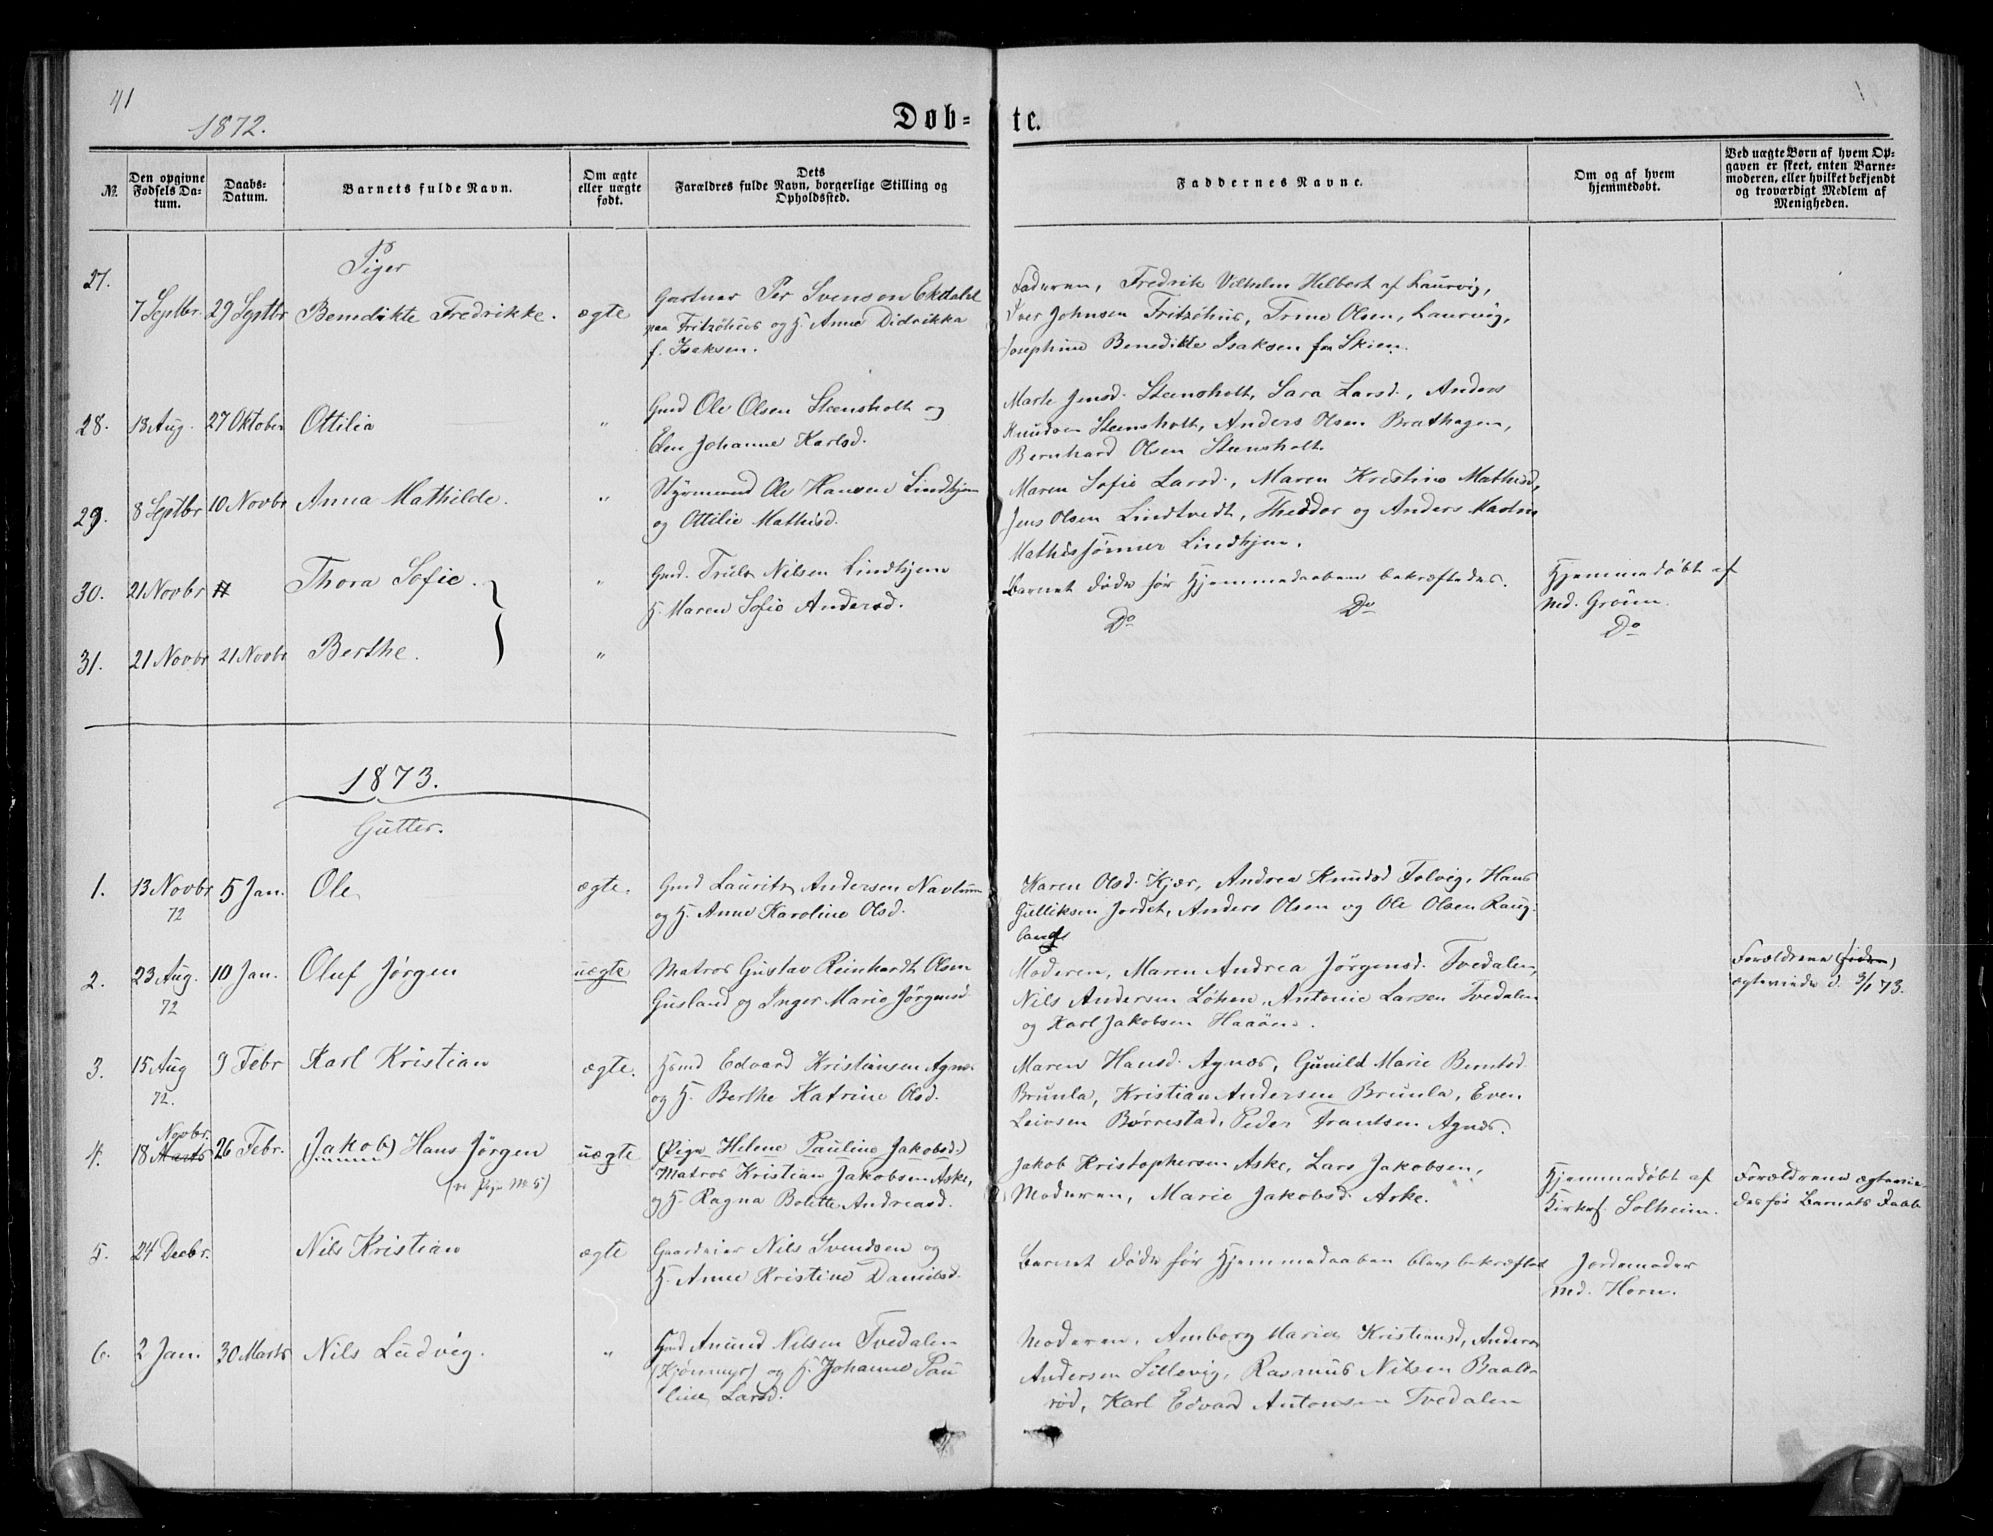 41
1872.
Døb-
te.
№
Den opgivne Fødsels Da-
tum.
Daabs-
Datum.
Barnets fulde Navn.
Om ægte
eller uægte
født.
Dets
Forældres fulde Navn, borgerlige Stilling og
Opholdssted.
Faddernes Navne.
Om og af hvem
hjemmedøbt.
Ved uægte Børn af hvem Op-
gaven er skeet, enten Barne-
moderen, eller hvilket bekjendt
og troværdigt Medlem af
Menigheden.
Piger
27.
7 Septbr 29 Septbr Benedikte Fredrikke. ægte
Gartner Per Svenson Ekdahl
paa Fritzöhus og H. Anne Didrikka
f. Isaksen.
Faderen, Fredrik Vilhelm Helbert af Laurvig,
Iver Johnsen Fritzöhus, Trine Olsen, Laurvig,
Josephine Benedikte Isaksen fra Skien.
28. 13 Aug. 27 Oktober Ottilia "
Gmd Ole Olsen Steensholt og
Elen Johanne Karlsd.
Marte Jensd. Steensholt, Sara Larsd., Anders
Knudsen Steensholt, Anders Olsen Brathagen,
Bernhard Olsen Steensholt.
29. 8 Septbr 10 Novbr Anna Mathilde. "
Styrmand Ole Hansen Lindhjem
og Ottilie Mathisd.
Maren Sofie Larsd., Maren Kristine Mathisd,
Jens Olsen Lindtvedt, Theodor og Anders Martin
Mathissønner Lindhjem.
30. 21 Novbr Thora Sofie. "
Gmd. Truls Nilsen Lindhjem
H. Maren Sofie Andersd.
Barnet døde før Hjemmedaaben bekræftedes.
Hjemmedøbt af
Md. Grönn.
Do Do Do
31. 21 Novbr 21 Novbr Berthe. "
1873.
Gutter.
1. 13 Novbr 72 5 Jan. Ole ægte.
Gmd Laurits Andersen Navlum
og H. Anne Karoline Olsd.
Karen Olsd. Kjær, Andrea Knudsd Tolvig, Hans
Gulliksen Jordet, Anders Olsen og Ole Olsen Raug-
land
2. 23 Aug. 72 10 Jan. Oluf Jørgen uægte
Matros Gustav Reinhardt Olsen
Gusland og Inger Marie Jørgensd.
Moderen, Maren Andrea Jørgensd. Tvedalen,
Nils Andersen Løken, Antonie Larsen Tvedalen
og Karl Jakobsen Haaöen.
Forældrene
ægteviede d. 3/1 73.
3. 15 Aug 72. 9 Febr Karl Kristian ægte.
Hsmd Edvard Kristiansen Agnæs
og H. Berthe Katrine Olsd.
Maren Hansd. Agnæs, Gunild Marie Berntsd
Brunla, Kristian Andersen Brunla, Even
Leivsen Børrestad, Peder Frantsen Agnæs.
4. 18 Marts Novbr. 26 Febr. (Jakob) Hans Jørgen uægte
(Pige Helene Pauline Jakobsd.)
Matros Kristian Jakobsen Aske,
og H. Ragna Bolette Andreasd.
Jakob Kristophersen Aske, Lars Jakobsen,
Moderen, Marie Jakobsd. Aske.
Hjemmedøbt af
Kirkes. Solheim.
Forældrene ægtevie-
des før Barnets Daab
5. 24 Decbr. Nils Kristian ægte
Gaardeier Nils Svendsen og
H. Anne Kristine Danielsd.
Barnet døde før Hjemmedaaben blev bekræftet
Jordemoder
Md. Horn.
6. 2 Jan. 30 Marts Nils Ludvig. "
Hmd Amund Nilsen Tvedalen
(Kjønmyr) og H. Johanne Pau
line Larsd.
Moderen, Amborg Marie Kristiansd, Anders
Andersen Sillevig, Rasmus Nilsen Baals-
rød, Karl Edvard Antonsen Tvedalen